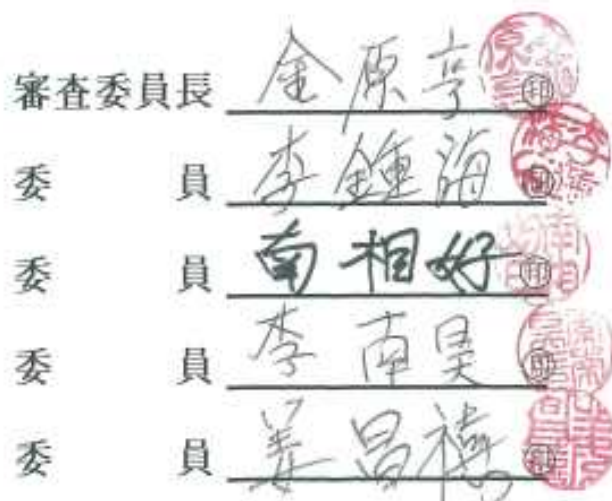 審査委員長 金原亨 ㊞
委員 李鍾海 ㊞
委員 南相好 ㊞
委員 李南昊 ㊞
委員 姜昌禧 ㊞